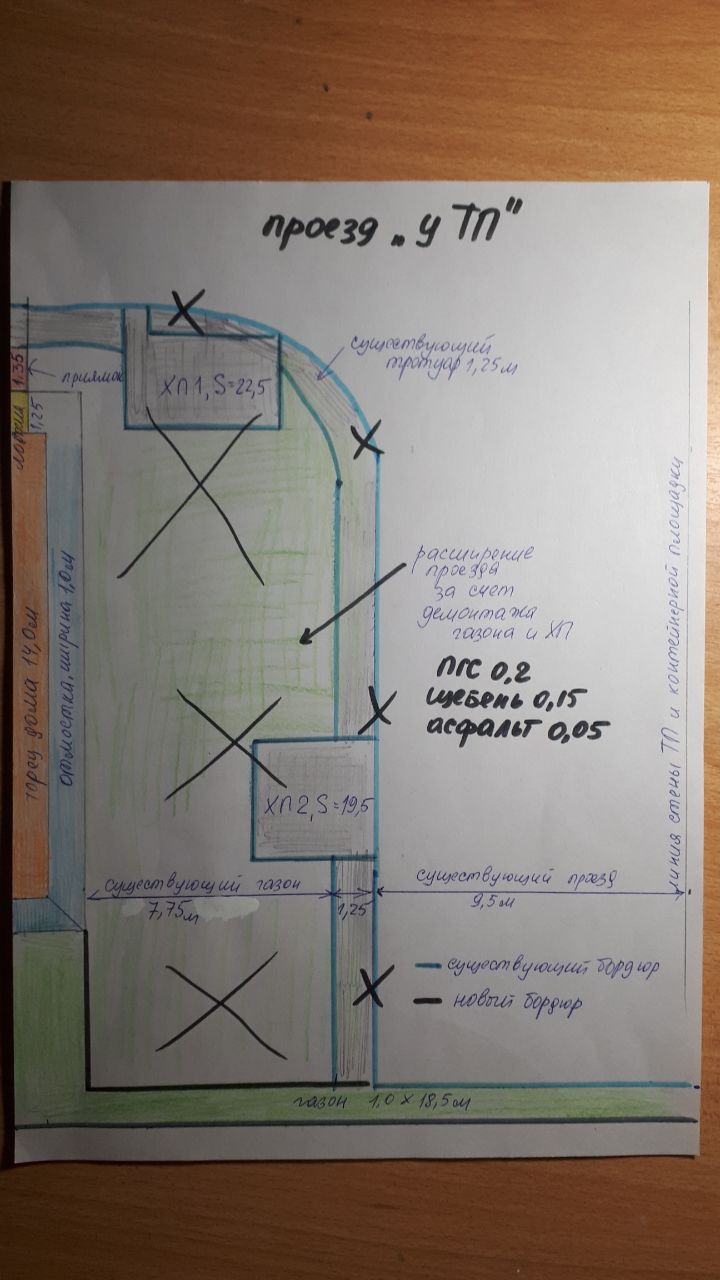 проезд „у ТП"
существующий
тротуар 1,25м
1,35
приямок
ХП1, S=22,5
лоджия
1,25
расширение
проезда
за счет
демонтажа
газона и ХП
ПГС 0,2
щебень 0,15
асфальт 0,05
торец дома 14,0м
отмостка, ширина 1,0м
линия стены ТП и контейнерной площадки
ХП2, S=19,5
существующий газон
7,75м
1,25
существующий проезд
9,5м
существующий бордюр
новый бордюр
газон 1,0 х 18,5м